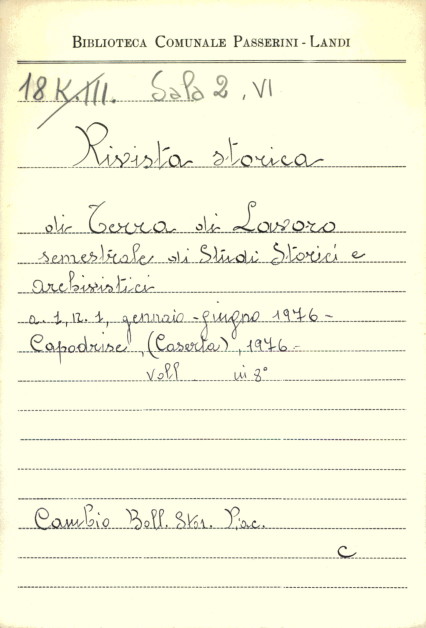 BIBLIOTECA COMUNALE PASSERINI - LANDI
18 K.III. Sala 2, VI
Rivista storica
di Terra di Lavoro
semestrale di Studi Storici e
archivistici
a. 1, n. 1, gennaio - giugno 1976 -
Capodrise, (Caserta), 1976 -
voll in 8°
Cambio Boll. Stor. Piac.
C